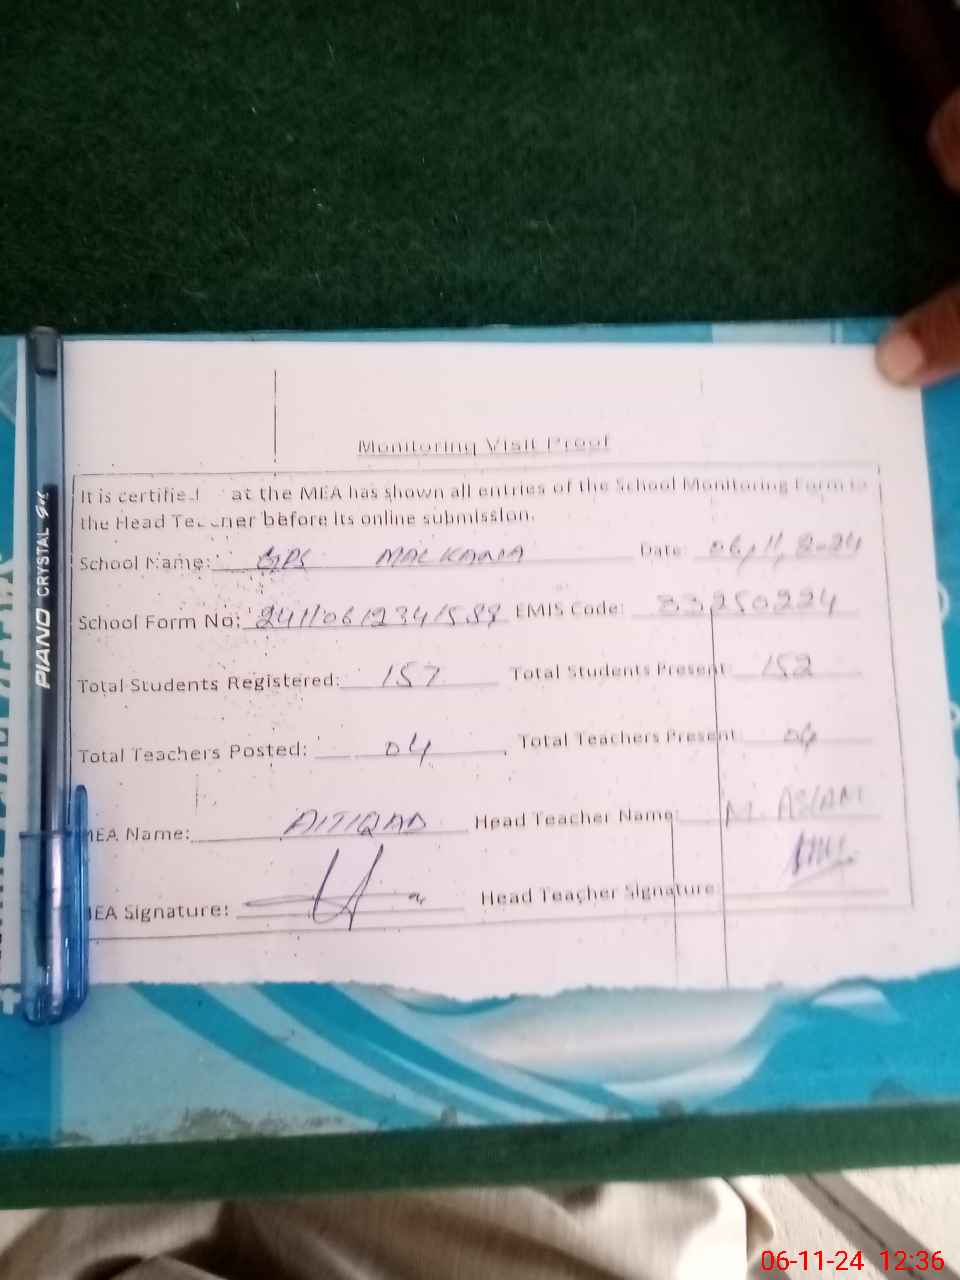 Monitoring Visit Proof
It is certified at the MEA has shown all entries of the School Monitoring Form to
the Head Teacher before its online submission.
School Name: GPS MALKANA Date: 06, 11, 2024
School Form No: EMIS Code: 33250224
Total Students Registered: 157 Total Students Present: 152
Total Teachers Posted: 04 Total Teachers Present: 04
MEA Name: AITIQAD Head Teacher Name: M. ASLAM
MEA Signature: Head Teacher Signature:
PIANO CRYSTAL Gel
06-11-24 12:36